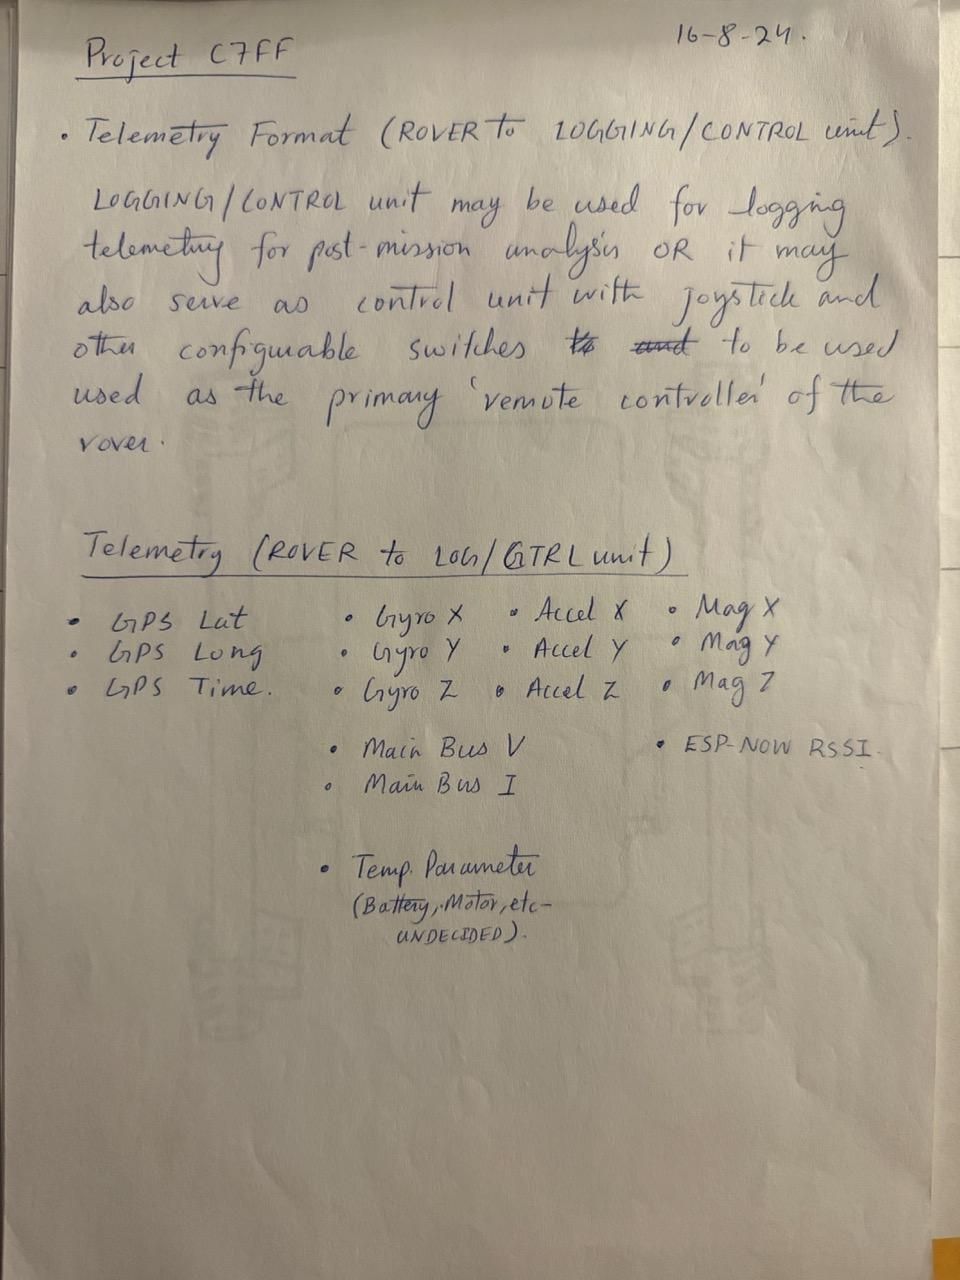 Project C7FF
16-8-24.
• Telemetry Format (ROVER to LOGGING/CONTROL unit).
LOGGING/CONTROL unit may be used for logging
telemetry for post-mission analysis OR it may
also serve as control unit with joystick and
other configurable switches to and to be used
used as the primary 'remote controller' of the
rover.
Telemetry (ROVER to LOG/CTRL unit)
• GPS Lat • Gyro X • Accel X • Mag X
• GPS Long • Gyro Y • Accel Y • Mag Y
• GPS Time. • Gyro Z • Accel Z • Mag Z
• Main Bus V • ESP-NOW RSSI.
• Main Bus I
• Temp. Parameter
(Battery, Motor, etc-
UNDECIDED).